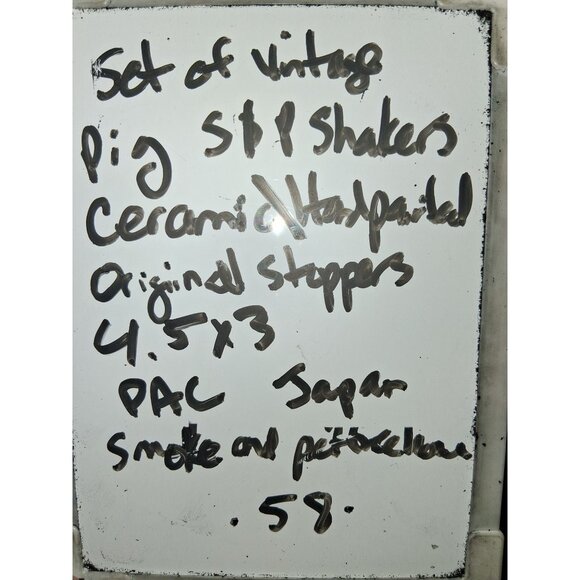 Set of Vintage
Pig S & P Shakers
Ceramic \ Handpainted
Original Stoppers
4.5x3
PAC Japan
Smoke and
.58.